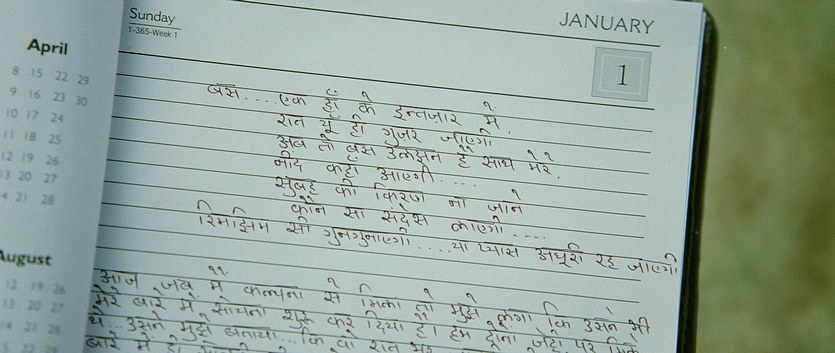 Sunday
1-365-Week 1
JANUARY
1
April
8 15 22 29
9 16 23 30
10 17 24
11 18 25
12 19 26
13 20 27
14 21 28
August
12 19 26
13 20 27
14 21 28
बस....एक हाँ के इन्तज़ार में,
रात यूँ ही गुज़र जाएगी
अब तो बस उलझन है साथ मेरे,
नींद कहाँ आएगी....
सुबह की किरण ना जाने
कौन सा संदेस लाएगी....
रिमझिम सी गुनगुनाएगी....या प्यास अधूरी रह जाएगी
आज जब मैं कल्पना से मिला तो मुझे लगा कि उसने भी
मेरे बारे में सोचना शुरू कर दिया है। हम दोनों जहाँ पर मिले
थे...उसने मुझे बताया...कि वो रात भर
बारे में ही